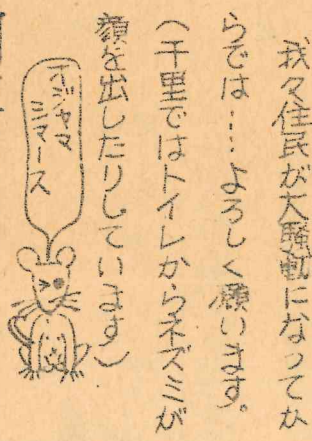 我々住民が大騒動になってか
らでは…よろしく願います。
(千里ではトイレからネズミが
顔を出したりしています)
オジャマ
シマース